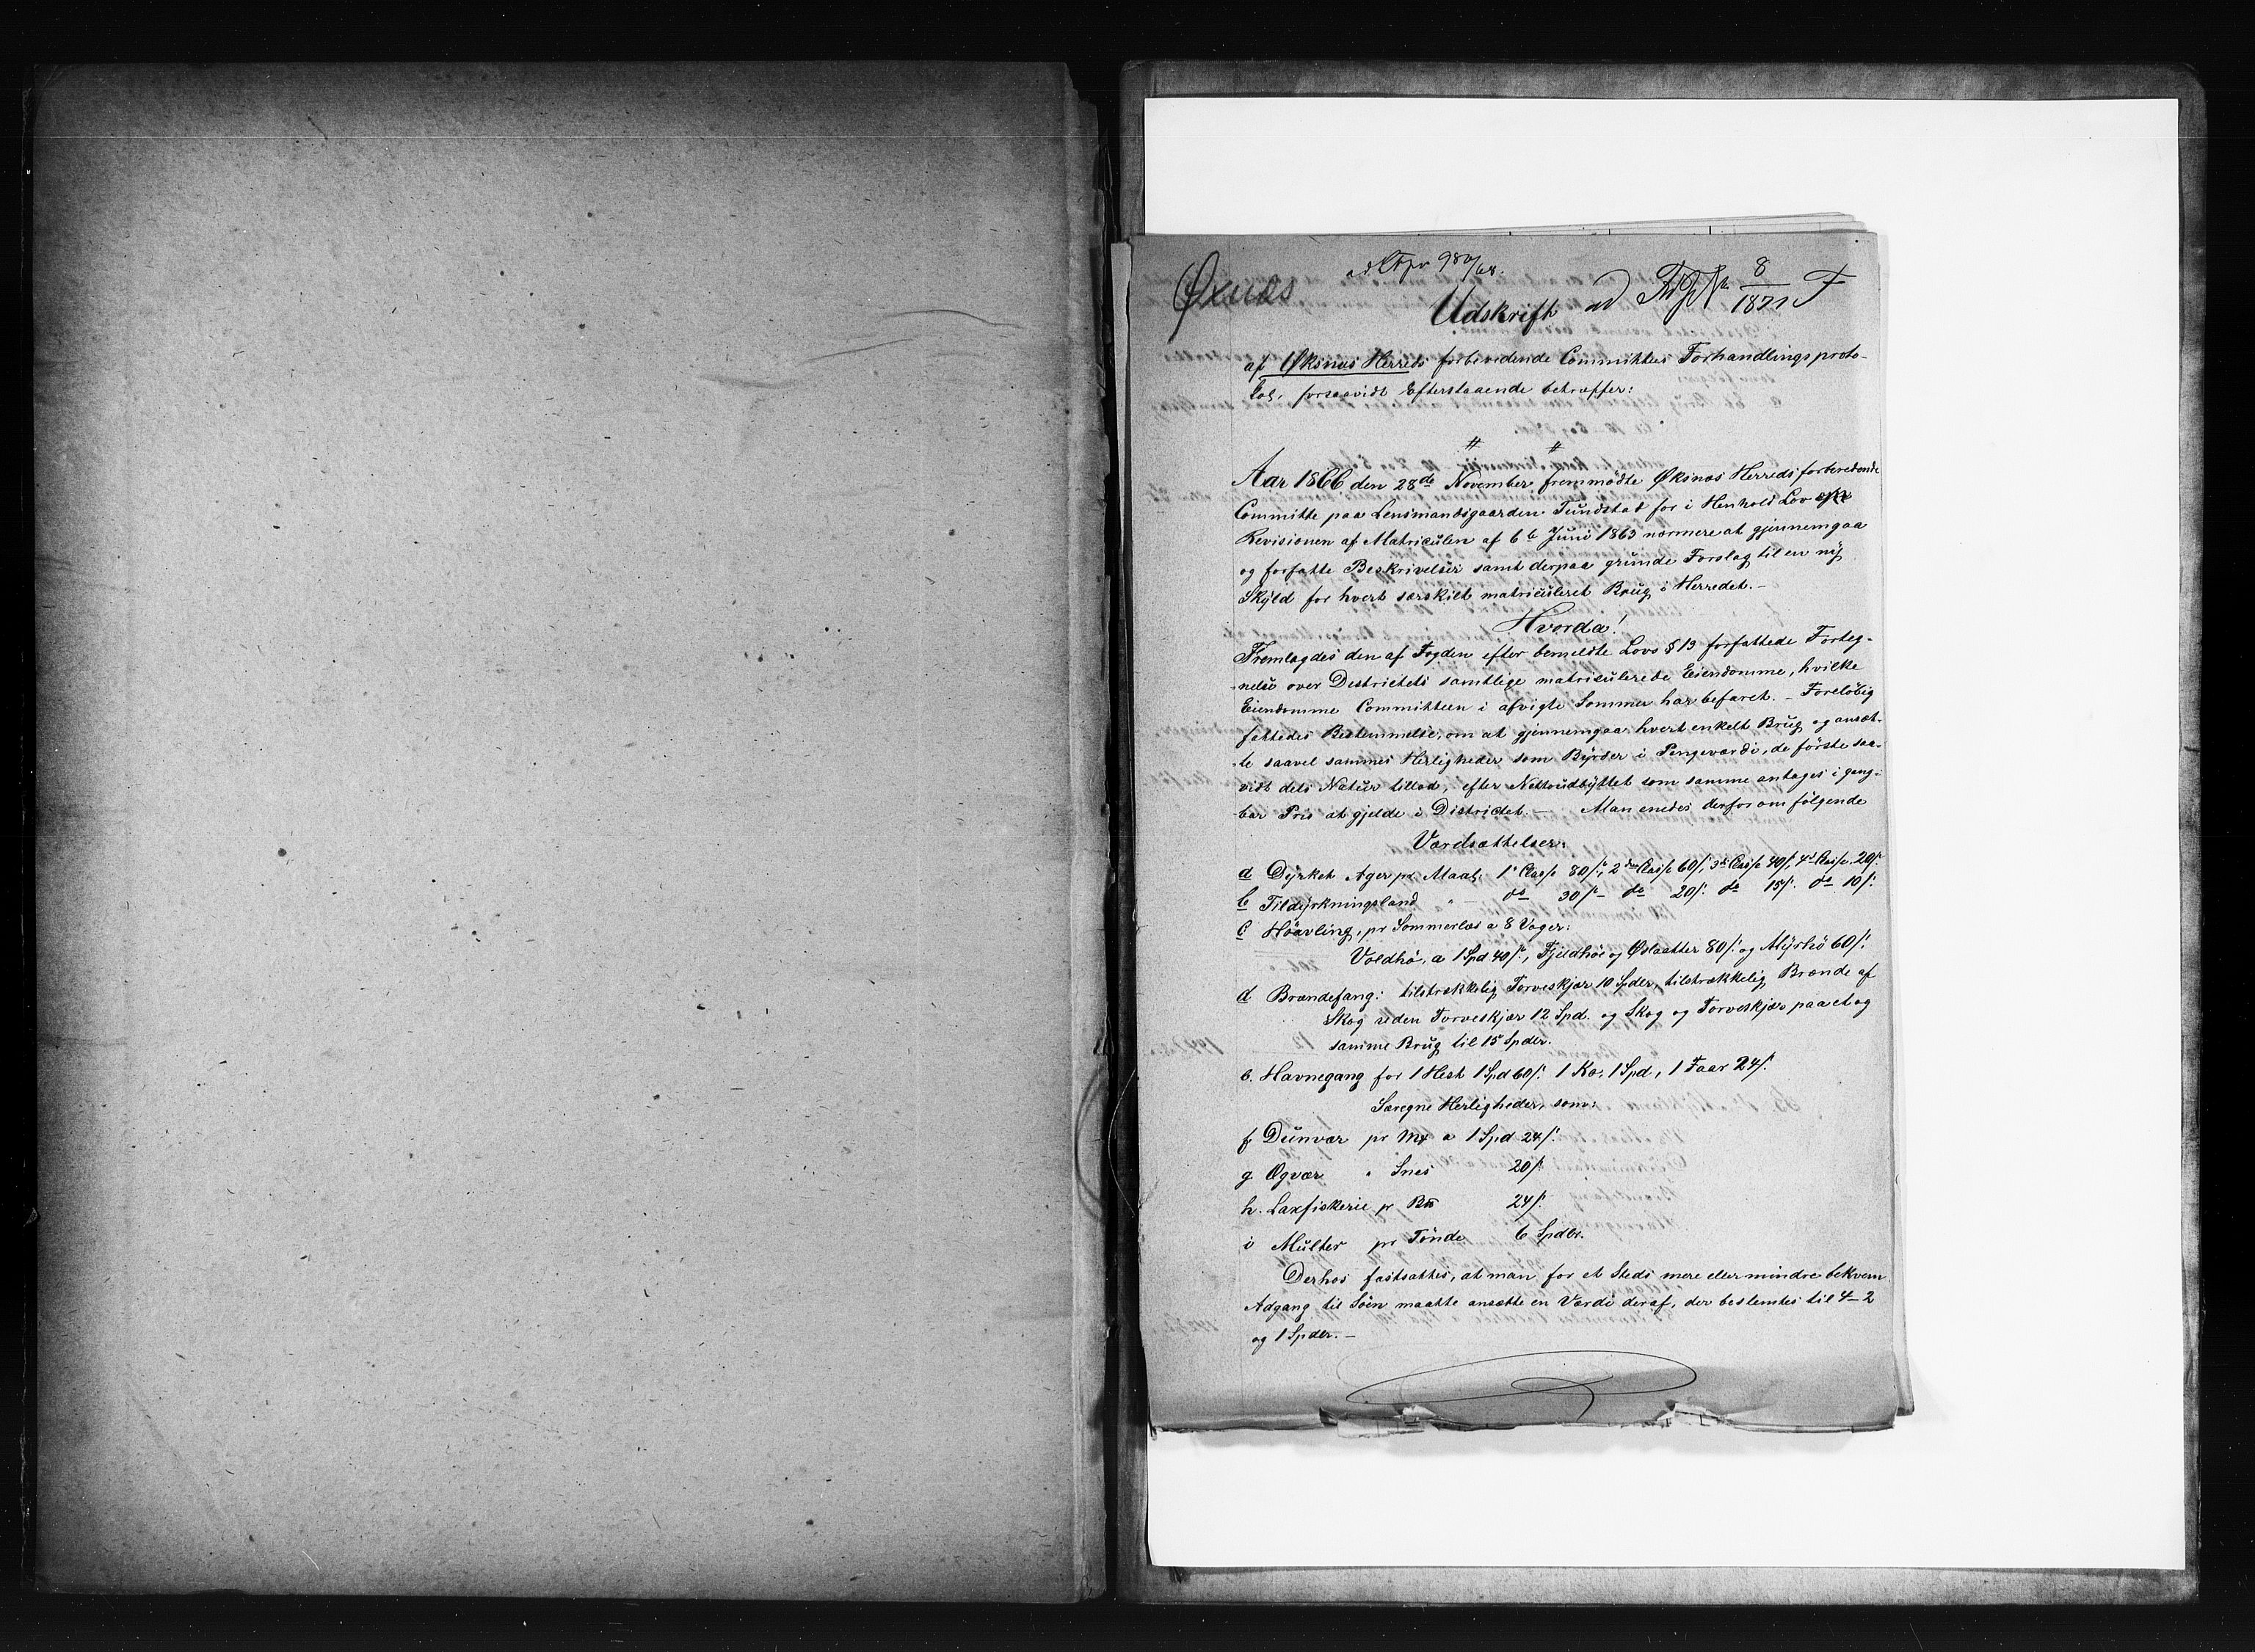 Øxnæs
980/68.
Udskrift ad 8/1871 F
af Øksnæs Herreds forberedende Committees Forhandlingsproto-
kol, forsaavidt Efterstaaende betræffer:
Aar 1866 den 28de November fremmødte Øksnæs Herreds forberedende
Committe paa Lensmandsgaarden Tunstad for i Henhold Lov om
Revisionen af Matriculen af 6te Juni 1863 nærmere at gjennemgaa
og forfatte Beskrivelser samt derpaa grunde Forslag til en ny
Skyld for hvert særskilt matriculeret Brug i Herredet. -
Hvorda!
Fremlagdes den af Fogden efter bemeldte Lovs § 13 forfattede Forteg-
nelse over Districtets samtlige matriculerede Eiendomme, hvilke
Eiendomme Committeen i afvigte Sommer har befaret. - Foreløbig
fattedes Bestemmelse, om at gjennemgaa hvert enkelt Brug og ansæt-
te saavel sammes Herligheder som Byrder i Pengeværdi, de første saa-
vidt dets Natur tillod, efter Nettoudbyttet som samme antages i gang-
bar Pris at gjelde i Districtet - Man enedes derfor om følgende
Værdsættelser:
a Dyrket Ager pr Maal: 1ste Classe 80/s, 2den Classe 60/s, 3die Classe 40/s, 4de Classe 20/s.
b Tildyrkningsland " - do 30/s - do 20/s. do 15/s. do 10/s.
c Høavling, pr Sommerlæs a 8 Voger:
Voldhø, a 1 Spd 40/s, Fjeldhøe og Øslaatter 80/s. og Myrhø 60/s.
d Brændefang: tilstrækkelig Torveskjær 10 Spdlr, tilstrækkelig Brænde af
Skog uden Torveskjær 12 Spd. og Skog og Torveskjær paa et og
samme Brug til 15 Spdlr.
e. Havnegang for 1 Hest 1 Spd 60/s. 1 Ko, 1 Spd, 1 Faar 24/s.
Særegne Herligheder, som:
f Dunvær pr Mk a 1 Spd 24/s.
g Ægvær " Snes 20/s.
h. Laxfiskerie pr 24/s.
i Multer pr Tønde 6 Spdlr.
Derhos fastsattes, at man for et Steds mere eller mindre bekvem
Adgang til Søen maatte ansætte en Værdi deraf, der bestemtes til 4 - 2
og 1 Spdlr. -